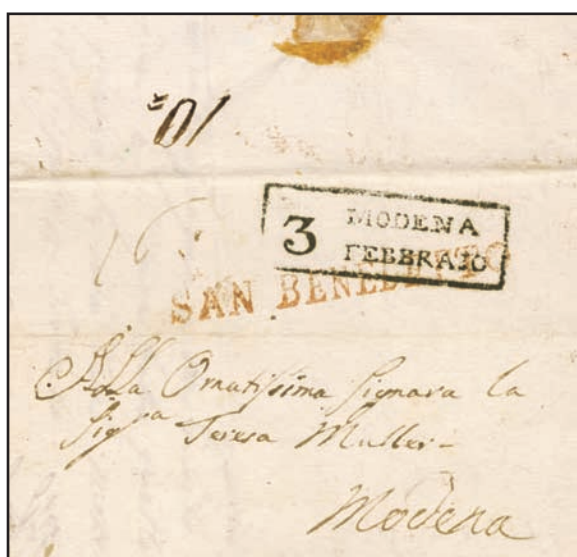 3 MODENA
FEBBRAJO
SAN BENEDETTO
Alla Ornatissima Signara la
Sigra Teresa Muller
Modena